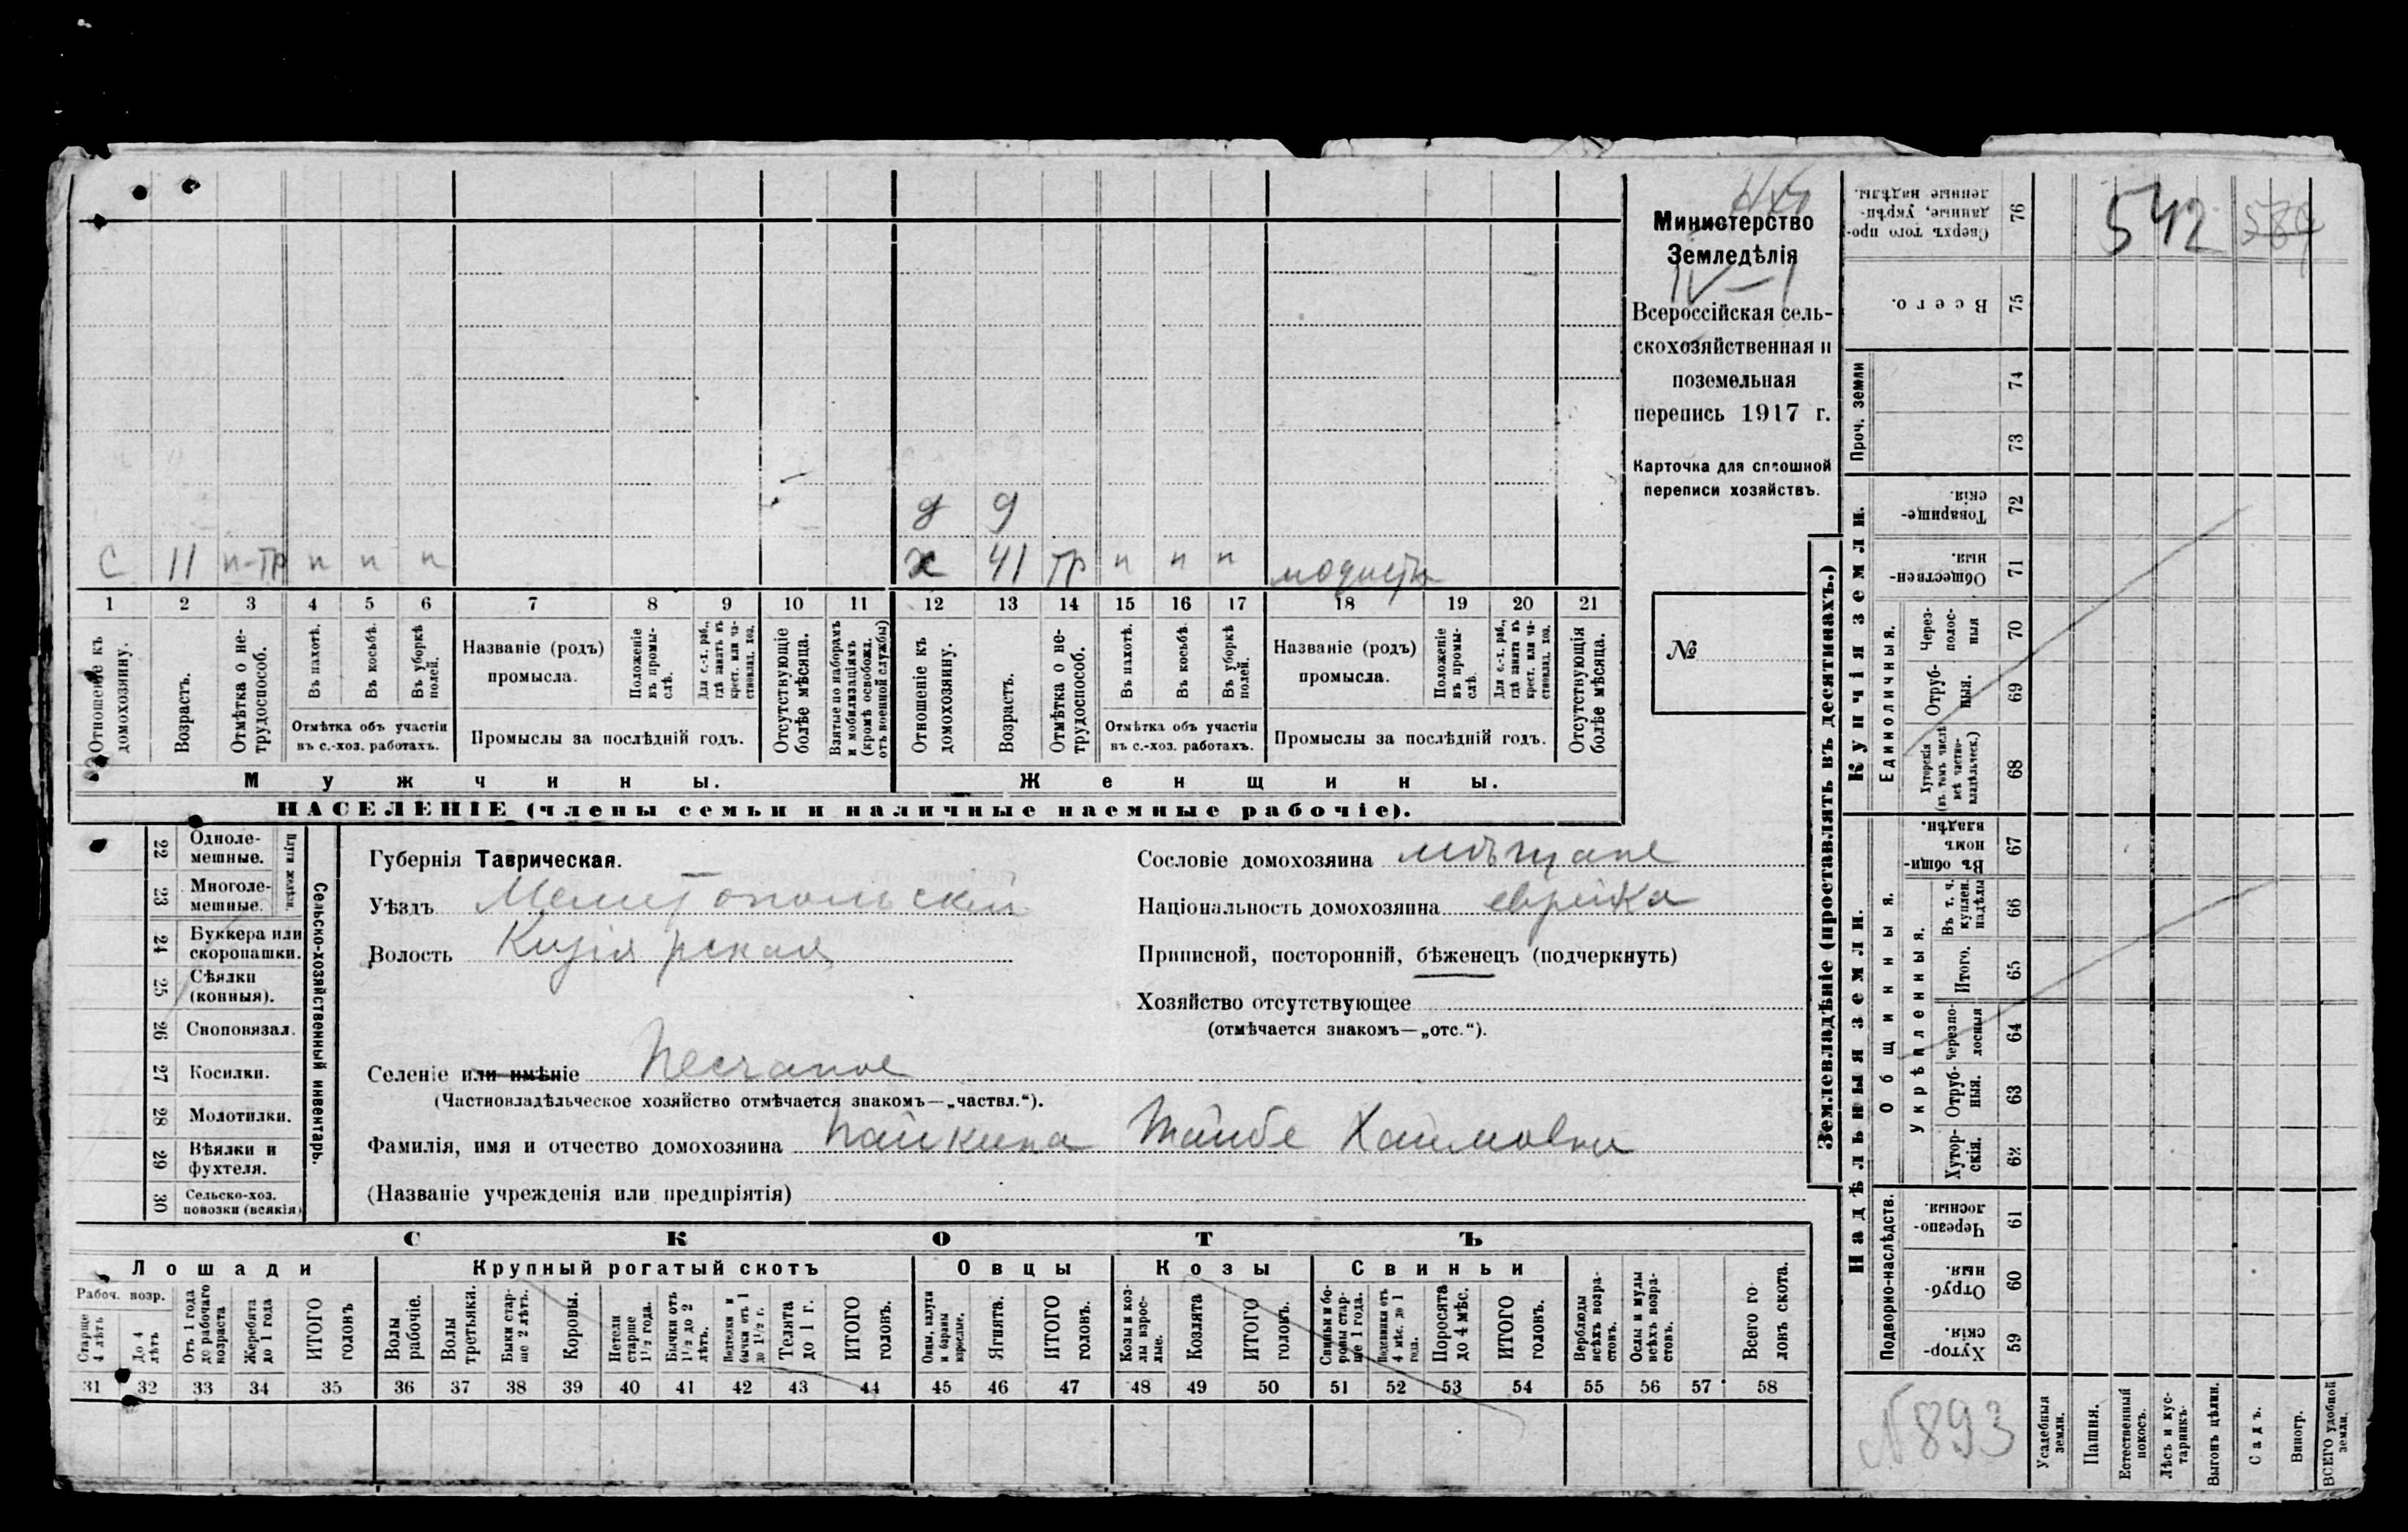 Министерство
Земледѣлія
IV – 1
Всероссійская сель-
скохозяйственная и
поземельная
перепись 1917 г.
Карточка для сплошной
переписи хозяйствъ.
№
д 9
С 11 н-тр н н н х 41 тр н н н модистк
1 2 3 4 5 6 7 8 9 10 11 12 13 14 15 16 17 18 19 20 21
Отношеніе къ домохозяину.
Возрастъ.
Отмѣтка о не-трудоспособ.
Въ пахотѣ.
Въ косьбѣ.
Въ уборкѣ полей.
Отмѣтка объ участіи
въ с.-хоз. работахъ.
Названіе (родъ)
промысла.
Положеніе въ промы-слѣ.
Для с.-х. раб., гдѣ занятъ въ крест. или ча-стновлад. хоз.
Промыслы за послѣдній годъ.
Отсутствующіе болѣе мѣсяца.
Взятые по наборамъ и мобилизаціямъ (кромѣ освобожд. отъ военной службы)
Отношеніе къ домохозяину.
Возрастъ.
Отмѣтка о не-трудоспособ.
Въ пахотѣ.
Въ косьбѣ.
Въ уборкѣ полей.
Отмѣтка объ участіи
въ с.-хоз. работахъ.
Названіе (родъ)
промысла.
Положеніе въ промы-слѣ.
Для с.-х. раб., гдѣ занята въ крест. или ча-стновлад. хоз.
Промыслы за послѣдній годъ.
Отсутствующія болѣе мѣсяца.
Мужчины. Женщины.
НАСЕЛЕНІЕ (члены семьи и наличные наемные рабочіе).
22 Одноле-
мешные.
23 Многоле-
мешные.
Плуги желѣзн.
24 Буккера или
скоропашки.
25 Сѣялки
(конныя).
26 Сноповязал.
27 Косилки.
28 Молотилки.
29 Вѣялки и
фухтеля.
30 Сельско-хоз.
повозки (всякія)
Сельско-хозяйственный инвентарь.
Губернія Таврическая.
Уѣздъ Мелитопольскій
Волость Кизіярская
Сословіе домохозяина мѣщане
Національность домохозяина еврейка
Приписной, посторонній, бѣженецъ (подчеркнуть)
Хозяйство отсутствующее
(отмѣчается знакомъ—„отс.“).
Селеніе или имѣніе Песчаное
(Частновладѣльческое хозяйство отмѣчается знакомъ—„частвл.“).
Фамилія, имя и отчество домохозяина Пайкина Тайбе Хаимовна
(Названіе учрежденія или предпріятія)
СКОТЪ
Лошади Крупный рогатый скотъ Овцы Козы Свиньи
Рабоч. возр.
Старше 4 лѣтъ
До 4 лѣтъ
Отъ 1 года до рабочаго возраста
Жеребята до 1 года
ИТОГО головъ
Волы рабочіе.
Волы третьяки.
Быки стар-ше 2 лѣтъ.
Коровы.
Нетели старше 1½ года.
Бычки отъ 1½ до 2 лѣтъ.
Подтелки и бычки отъ 1 до 1½ г.
Телята до 1 г.
ИТОГО головъ.
Овцы, валухи и бараны взрослые.
Ягнята.
ИТОГО головъ.
Козы и коз-лы взрос-лые.
Козлята
ИТОГО головъ.
Свиньи и бо-ровы стар-ше 1 года.
Подсвинки отъ 4 мѣс. до 1 года.
Поросята до 4 мѣс.
ИТОГО головъ.
Верблюды всѣхъ возра-стовъ.
Ослы и мулы всѣхъ возра-стовъ.
Всего го-ловъ скота.
31 32 33 34 35 36 37 38 39 40 41 42 43 44 45 46 47 48 49 50 51 52 53 54 55 56 57 58
Землевладѣніе (проставлять въ десятинахъ.)
542 584
Сверхъ того про-данные, укрѣп-ленные надѣлы. 76
Всего. 75
Проч. земли 74
73
Купчія земли.
Товарище-скія. 72
Обществен-ныя. 71
Единоличныя.
Через-полос-ныя 70
Отруб-ныя. 69
Хуторскія (въ томъ числѣ всѣ частно-владѣльческ.) 68
Надѣльныя земли.
Общинныя.
Въ общин-номъ владѣн. 67
Укрѣпленныя.
Въ т. ч. куплен. надѣлы 66
Итого. 65
Черезпо-лосныя 64
Отруб-ныя. 63
Хутор-скія. 62
Подворно-наслѣдств.
Черезпо-лосныя. 61
Отруб-ныя. 60
Хутор-скія. 59
№893
Усадебныя земли.
Пашня.
Естественный покосъ.
Лѣсъ и кус-тарникъ.
Выгонъ цѣлин.
Садъ.
Виногр.
ВСЕГО удобной земли.